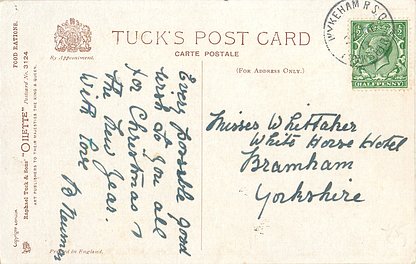 TUCK'S POST CARD
CARTE POSTALE
By Appointment.
(FOR ADDRESS ONLY.)
WYKEHAM R.S.O.
HALFPENNY
FOOD RATIONS.
Raphael Tuck & Sons' "OILETTE" Postcard No. 3124
ART PUBLISHERS TO THEIR MAJESTIES THE KING & QUEEN.
Copyright
Printed in England.
Every possible good
wish to you all
for Christmas &
the New Year.
With love
B
Misses Whittaker
White Horse Hotel
Bramham
Yorkshire